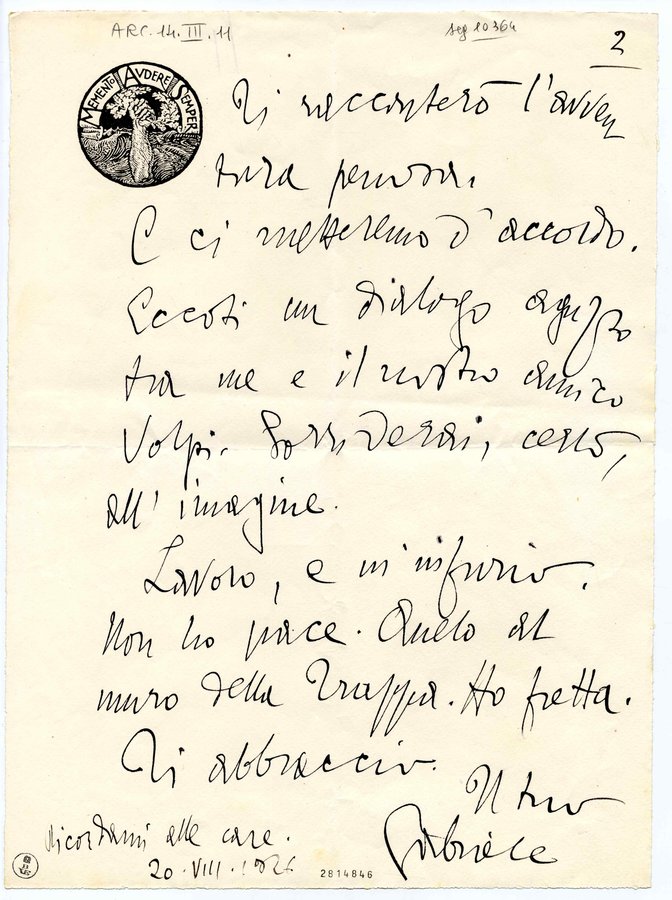 ARC. 14. III. 11
seg 10364
2
MEMENTO AVDERE SEMPER
Ti racconterò l'avven
tura penosa.
E ci metteremo d'accordo.
Eccoti un dialogo aguzzo
tra me e il nostro amico
Volpi. Sorriderai, certo,
all'imagine.
Lavoro, e m'infurio.
Non ho pace. Anelo al
muro della Trappa. Ho fretta.
Ti abbraccio.
Il tuo
Gabriele
Ricordami alle care.
20. VIII. 1926
2814846